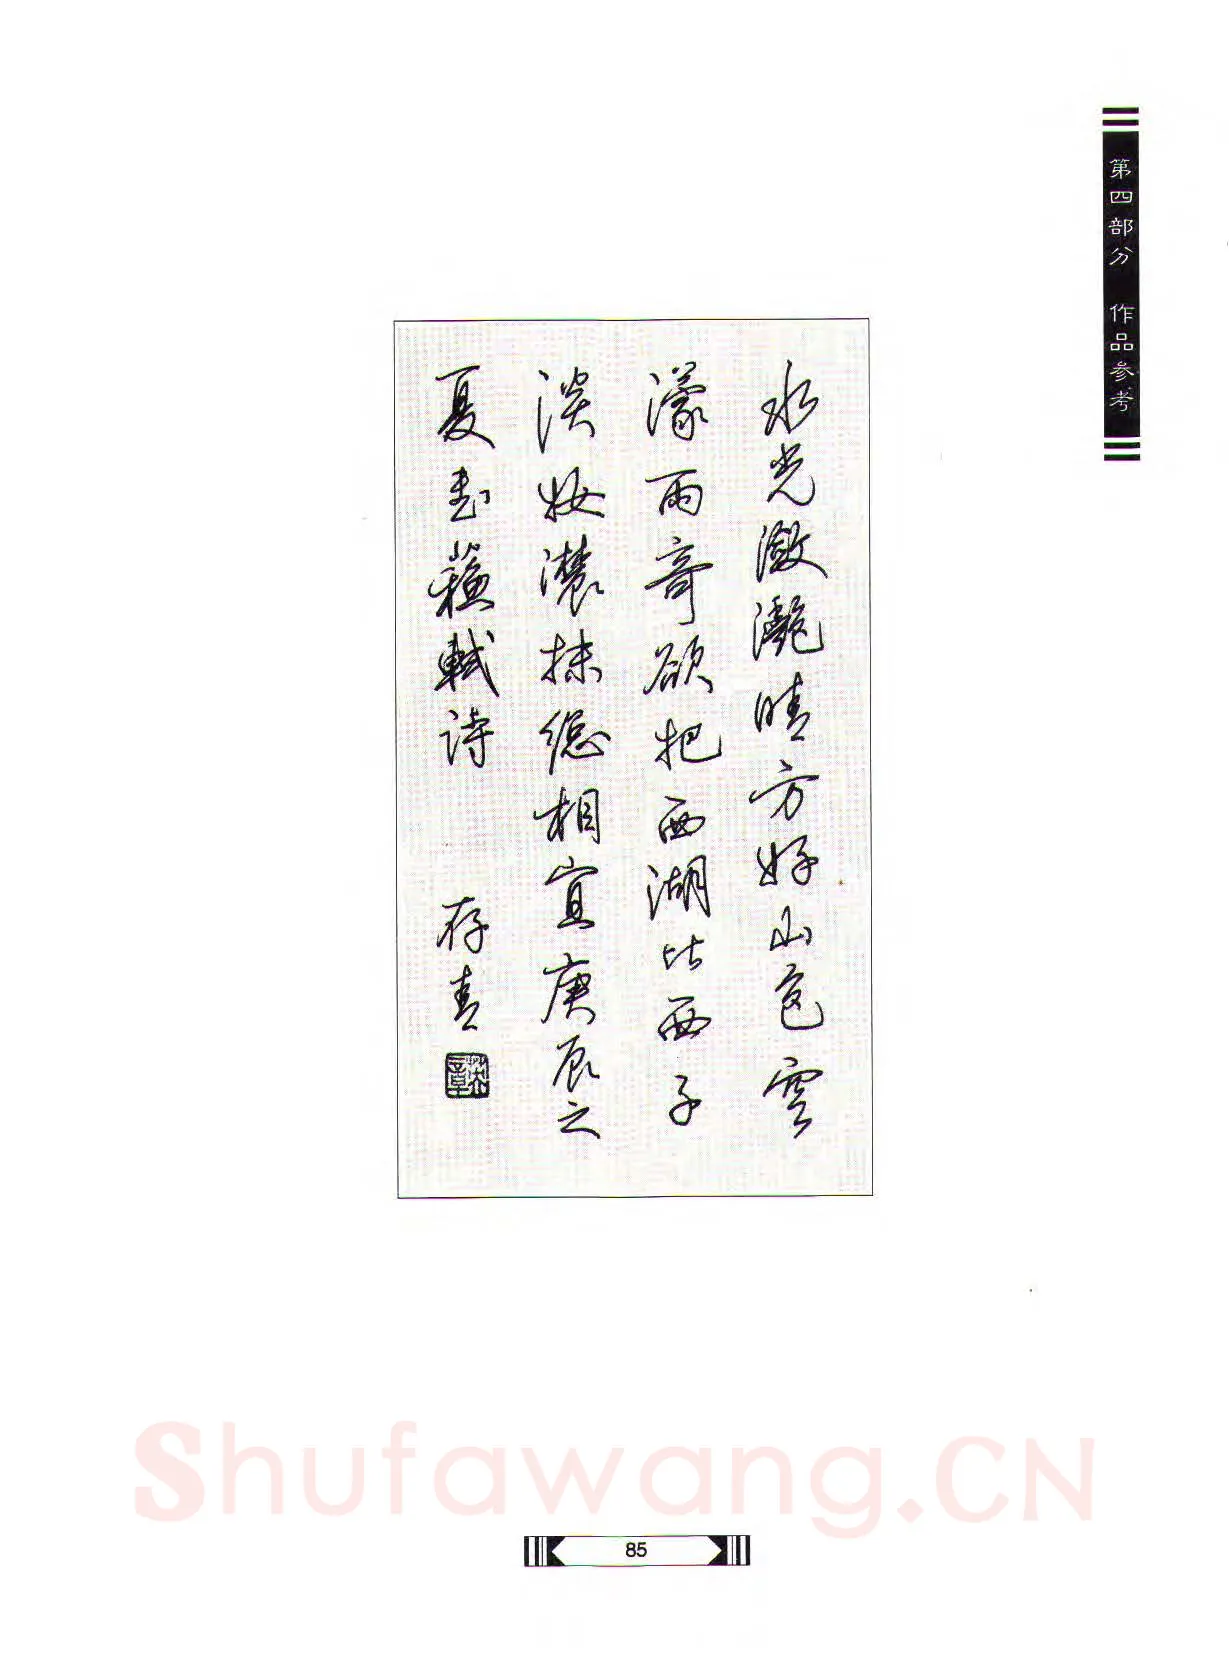 第四部分 作品参考
水光瀲灧晴方好山色空
濛雨奇欲把西湖比西子
淡妝濃抹總相宜庚辰之
夏书蘇軾詩 存青
Shufawang.CN
85